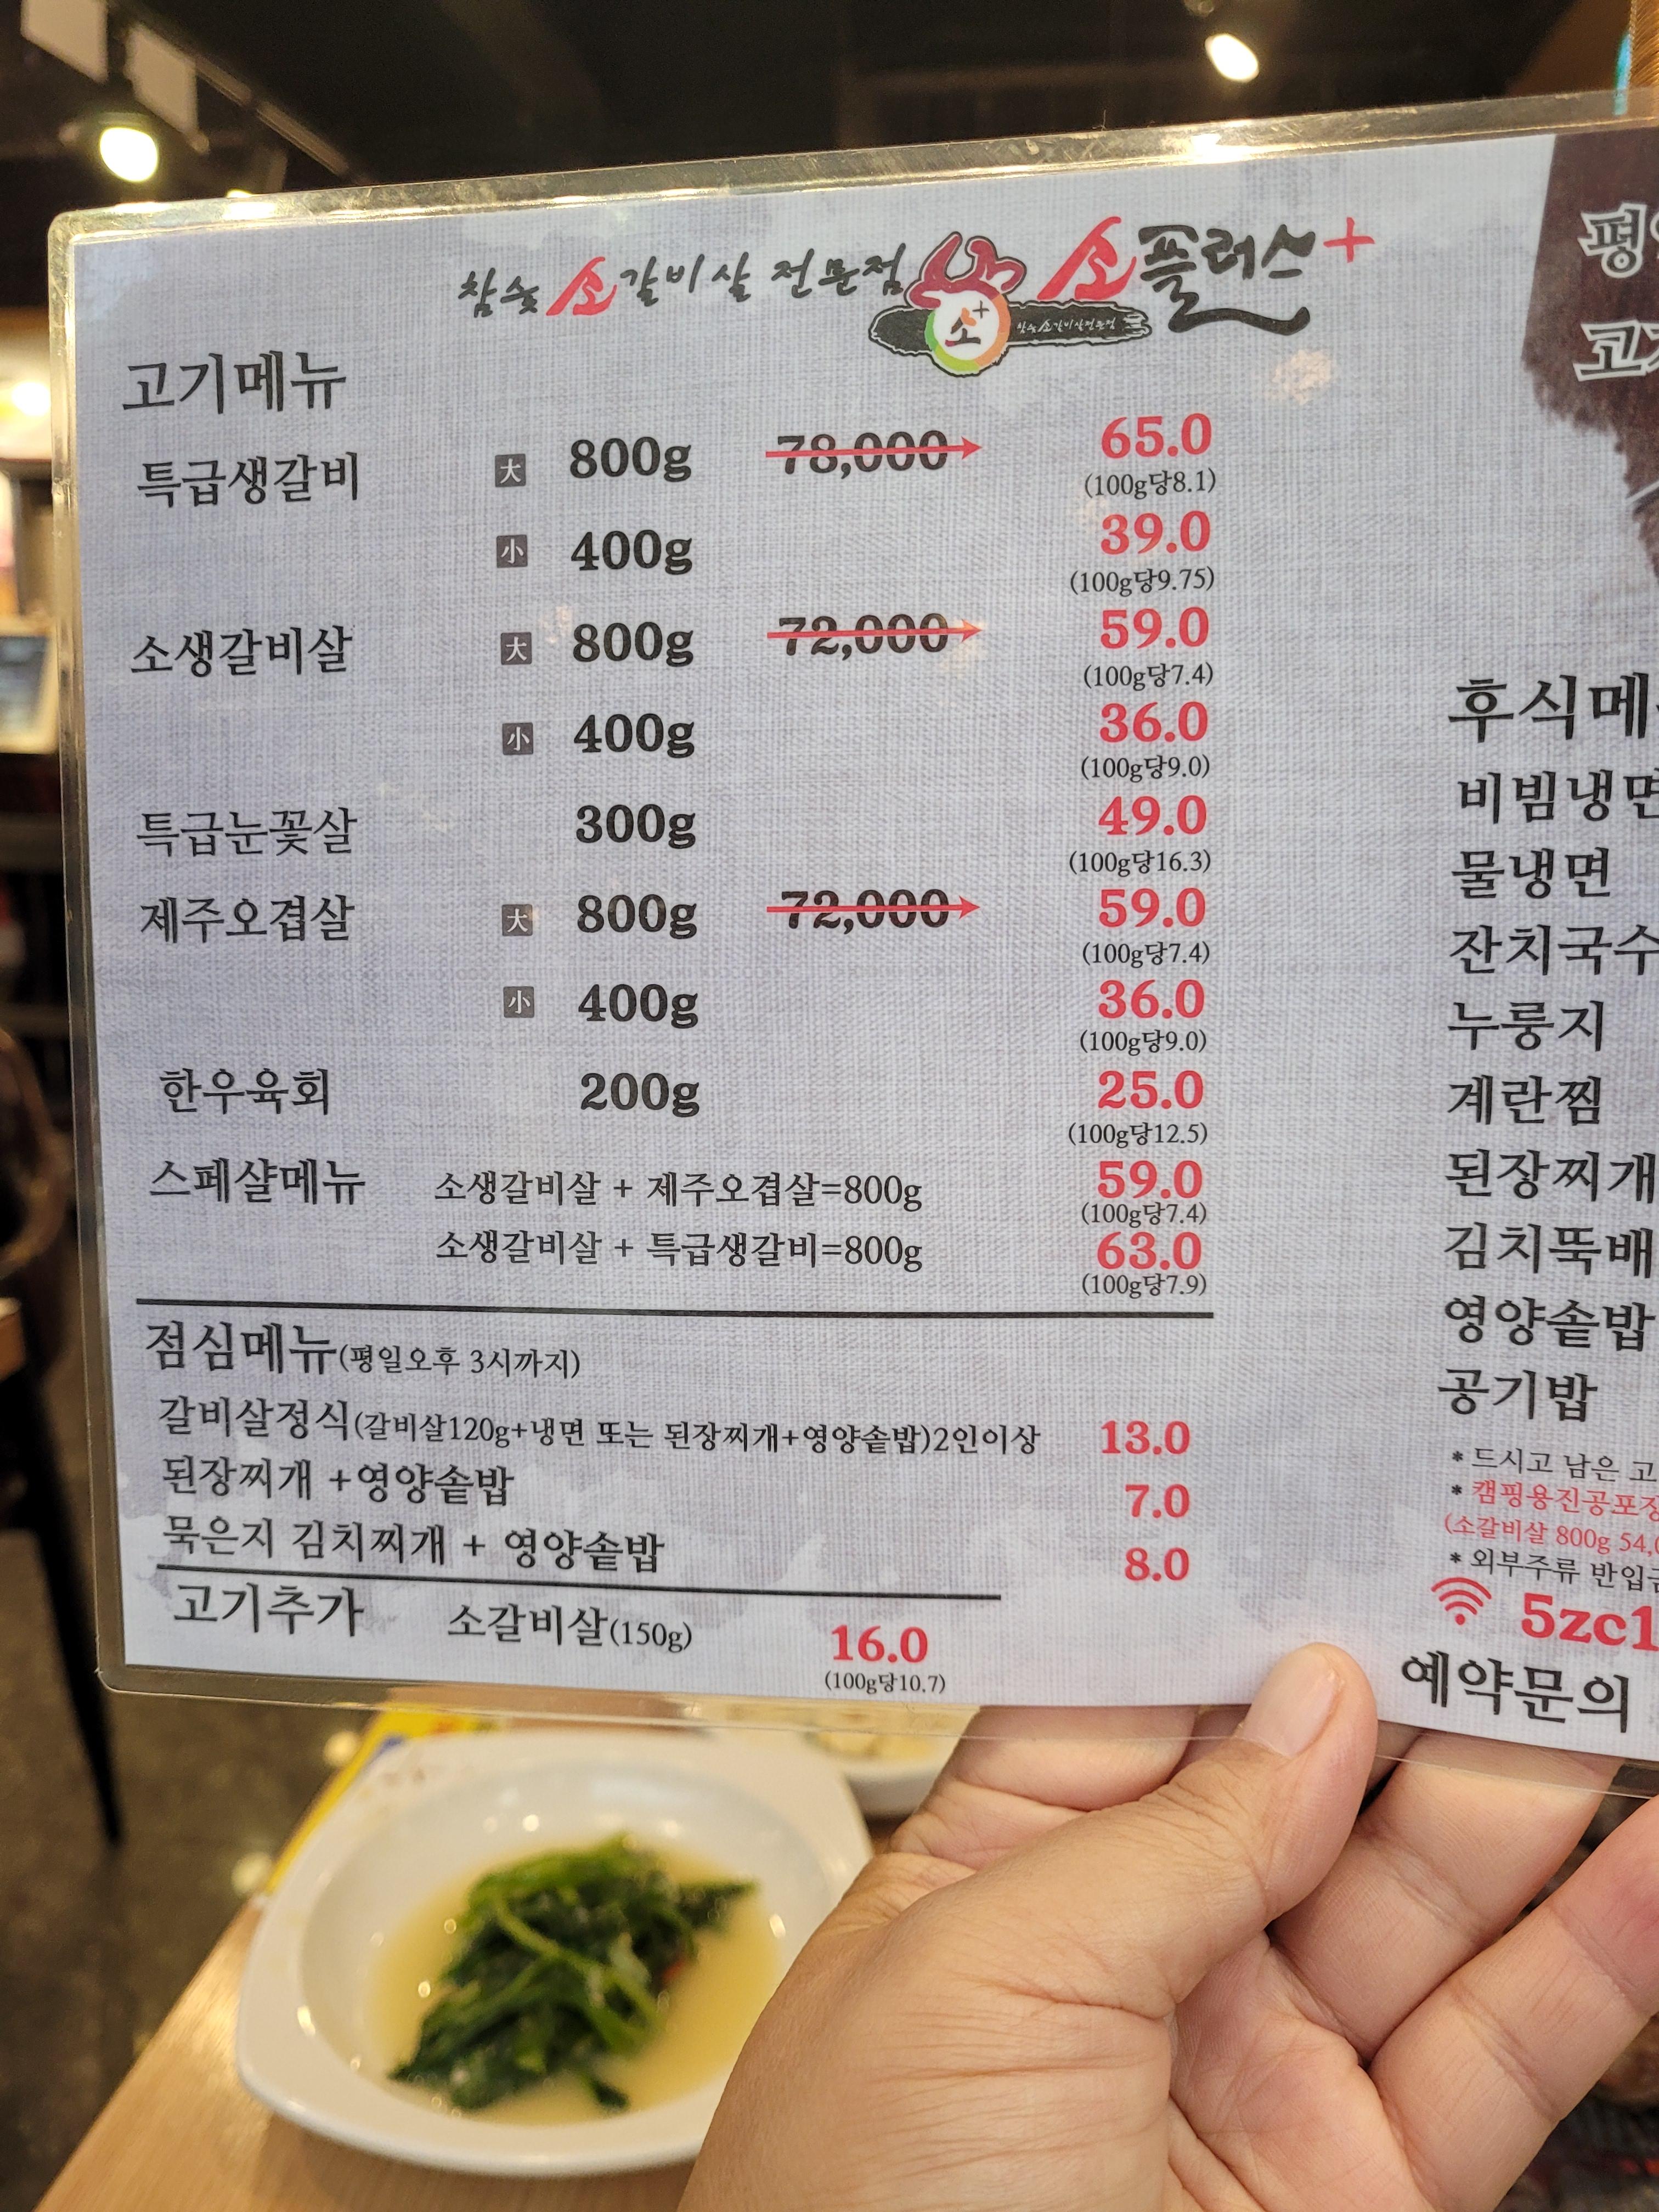 참숯 소갈비살 전문점 소플러스+
소+ 참숯소갈비살전문점
고기메뉴
특급생갈비 大 800g 78,000 65.0
(100g당8.1)
小 400g 39.0
(100g당9.75)
소생갈비살 大 800g 72,000 59.0
(100g당7.4)
小 400g 36.0
(100g당9.0)
특급눈꽃살 300g 49.0
(100g당16.3)
제주오겹살 大 800g 72,000 59.0
(100g당7.4)
小 400g 36.0
(100g당9.0)
한우육회 200g 25.0
(100g당12.5)
스페샬메뉴 소생갈비살 + 제주오겹살=800g 59.0
(100g당7.4)
소생갈비살 + 특급생갈비=800g 63.0
(100g당7.9)
점심메뉴(평일오후 3시까지)
갈비살정식(갈비살120g+냉면 또는 된장찌개+영양솥밥)2인이상 13.0
된장찌개 +영양솥밥 7.0
묵은지 김치찌개 + 영양솥밥 8.0
고기추가 소갈비살(150g) 16.0
(100g당10.7)
후식메
비빔냉면
물냉면
잔치국수
누룽지
계란찜
된장찌개
김치뚝배
영양솥밥
공기밥
* 드시고 남은 고
* 캠핑용진공포장
(소갈비살 800g 54,
* 외부주류 반입금
5zc1
예약문의